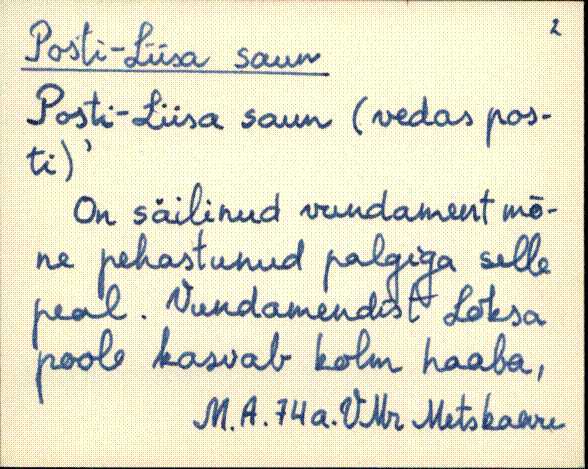 2
Posti-Liisa saun
Posti-Liisa saun (vedas pos-
ti)'
On säilinud vundament mõ-
ne pehastunud palgiga selle
peal. Vundamendist Loksa
poole kasvab kolm haaba,
M.A. 74a. VMr Metskaevu